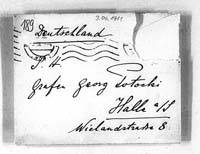 189
3.06.1911
Deutschland
S. H.
Grafen Georg Potocki
Halle a/S
Wielandstrasse 8